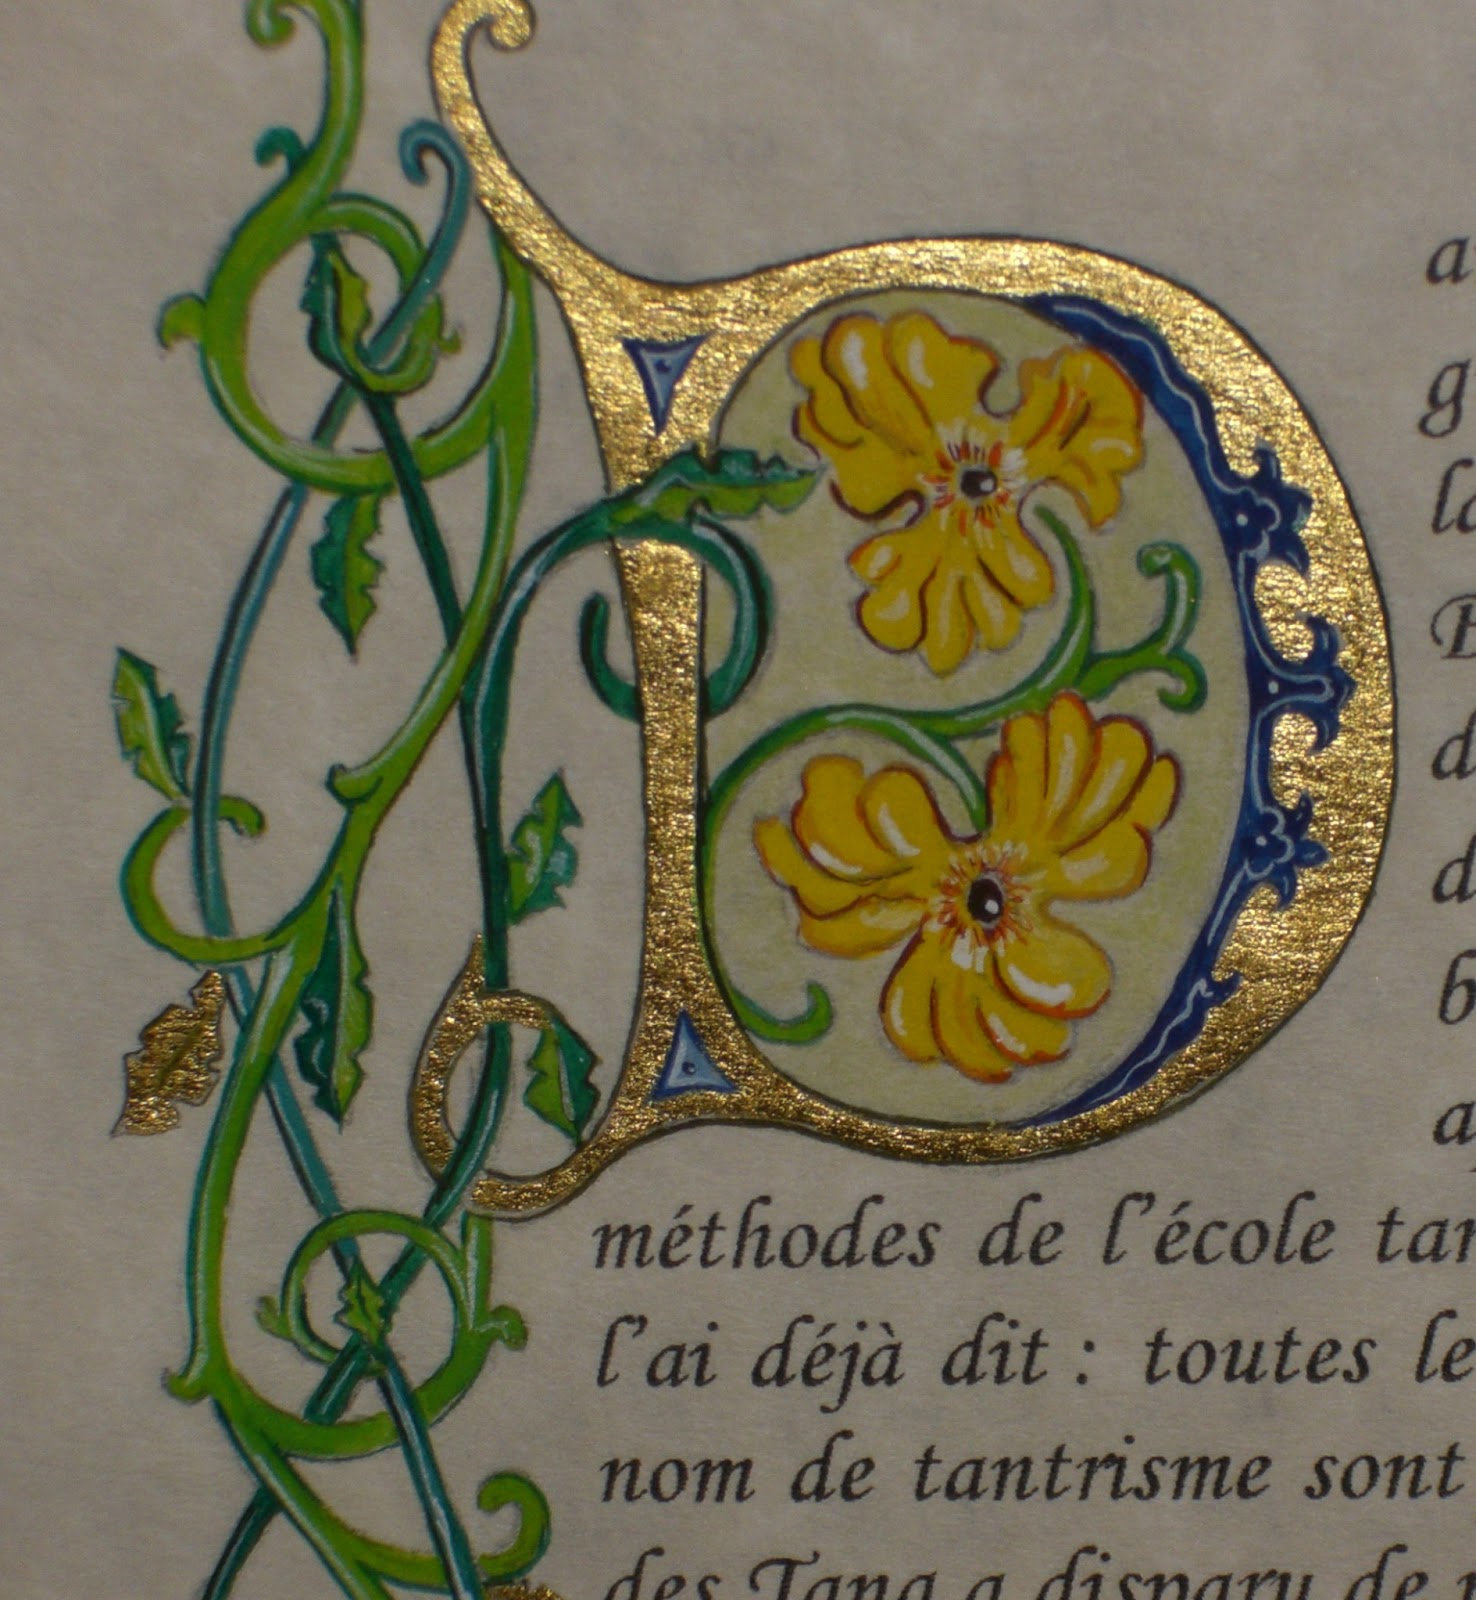 D
a
g
la
d
d
b
a
méthodes de l'école tan
l'ai déjà dit : toutes le
nom de tantrisme sont
des Tang a disparu de